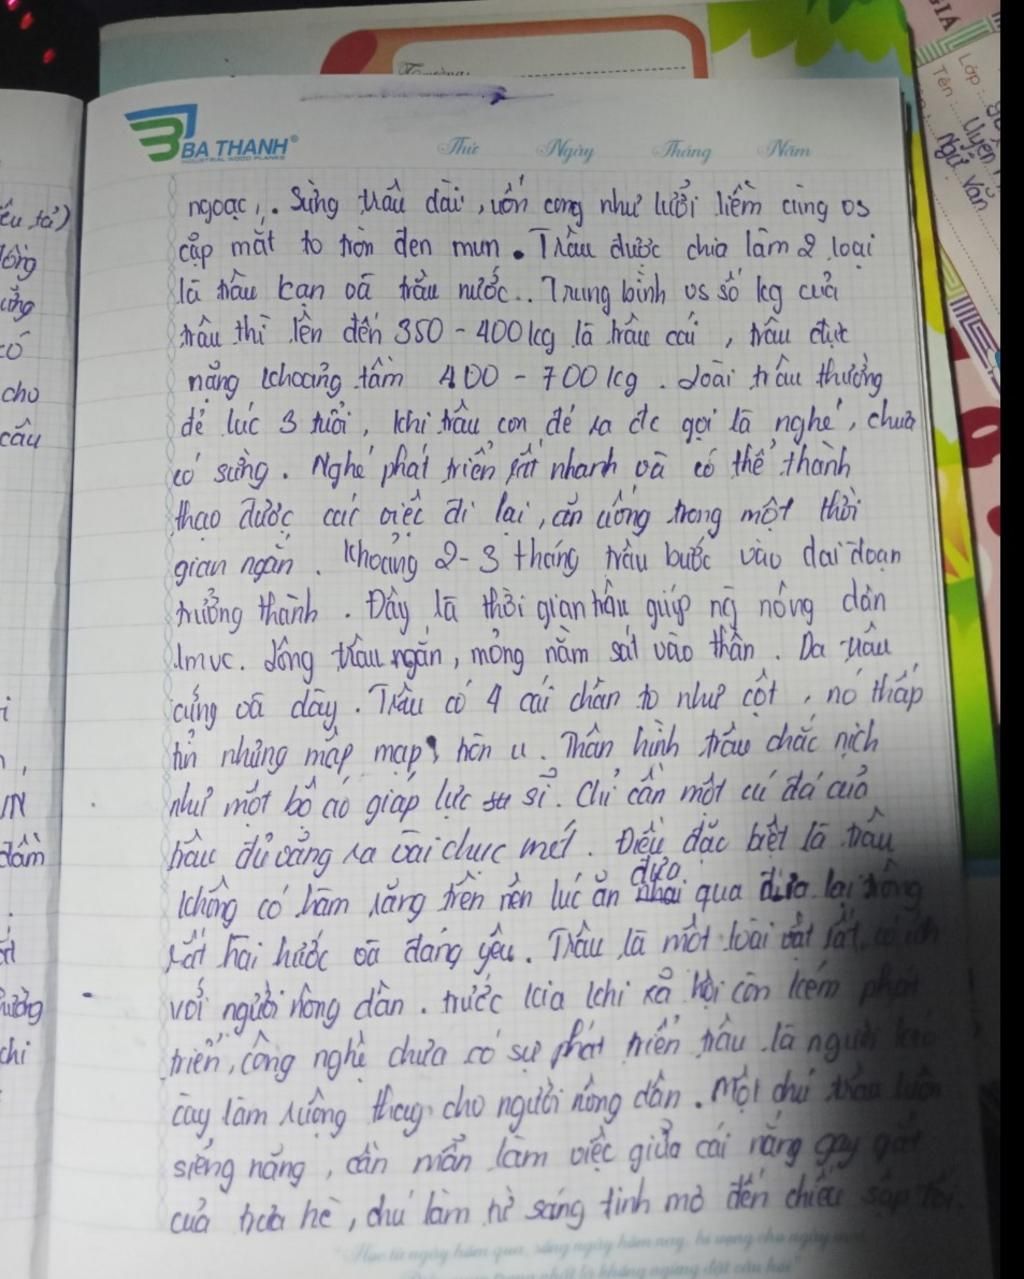 Trường:
BA THANH®
INDUSTRIAL WOOD PLANKS
Thứ Ngày Tháng Năm
ngoạc,. Sừng trâu dài, uốn cong như lưỡi liềm cùng vs
cặp mắt to tròn đen mun. Trâu được chia làm 2 loại
là trâu cạn và trâu nước.. Trung bình vs số kg của
trâu thì lên đến 350 - 400kg là trâu cái, trâu đực
nặng khoảng tầm 400 - 700kg. Loài trâu thường
đẻ lúc 3 tuổi, khi trâu con đẻ ra đc gọi là nghé, chưa
có sừng. Nghé phát triển rất nhanh và có thể thành
thạo được các việc đi lại, ăn uống trong một thời
gian ngắn. Khoảng 2-3 tháng trâu bước vào dai đoạn
trưởng thành. Đây là thời gian trâu giúp ng nông dân
Lông trâu ngắn, mỏng nằm sát vào thân. Da trâu
cứng và dày. Trâu có 4 cái chân to như cột, nó thấp
nhưng mập mạp. Thân hình trâu chắc nịch
như một bộ áo giáp lực sĩ. Chỉ cần một cú đá của
trâu đủ văng ra vài chục mét. Điều đặc biệt là trâu
không có hàm răng trên nên lúc ăn đưa qua đưa lại trông
rất hài hước và đáng yêu. Trâu là một loài vật rất có ích
với người nông dân. trước kia khi xã hội còn kém phát
triển, công nghệ chưa có sự phát triển trâu là người
cày làm ruộng thay cho người nông dân. Một chú trâu luôn
siêng năng, cần mẫn làm việc giữa cái nắng gay gắt
của trưa hè, chú làm từ sáng tinh mơ đến chiều sập tối.
"Học từ ngày hôm qua, sống ngày hôm nay, hi vọng cho ngày mai.
không ngừng đặt câu hỏi"
tả)
cho
câu
IN
chi
GIA
Lớp:
Tên:
Uyên
Ngữ Văn